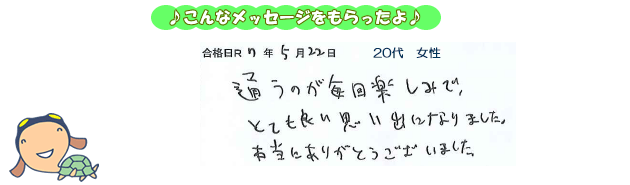 ♪こんなメッセージをもらったよ♪
合格日R 7 年 5 月 22 日 20代 女性
通うのが毎回楽しみで、
とても良い思い出になりました。
本当にありがとうございました。